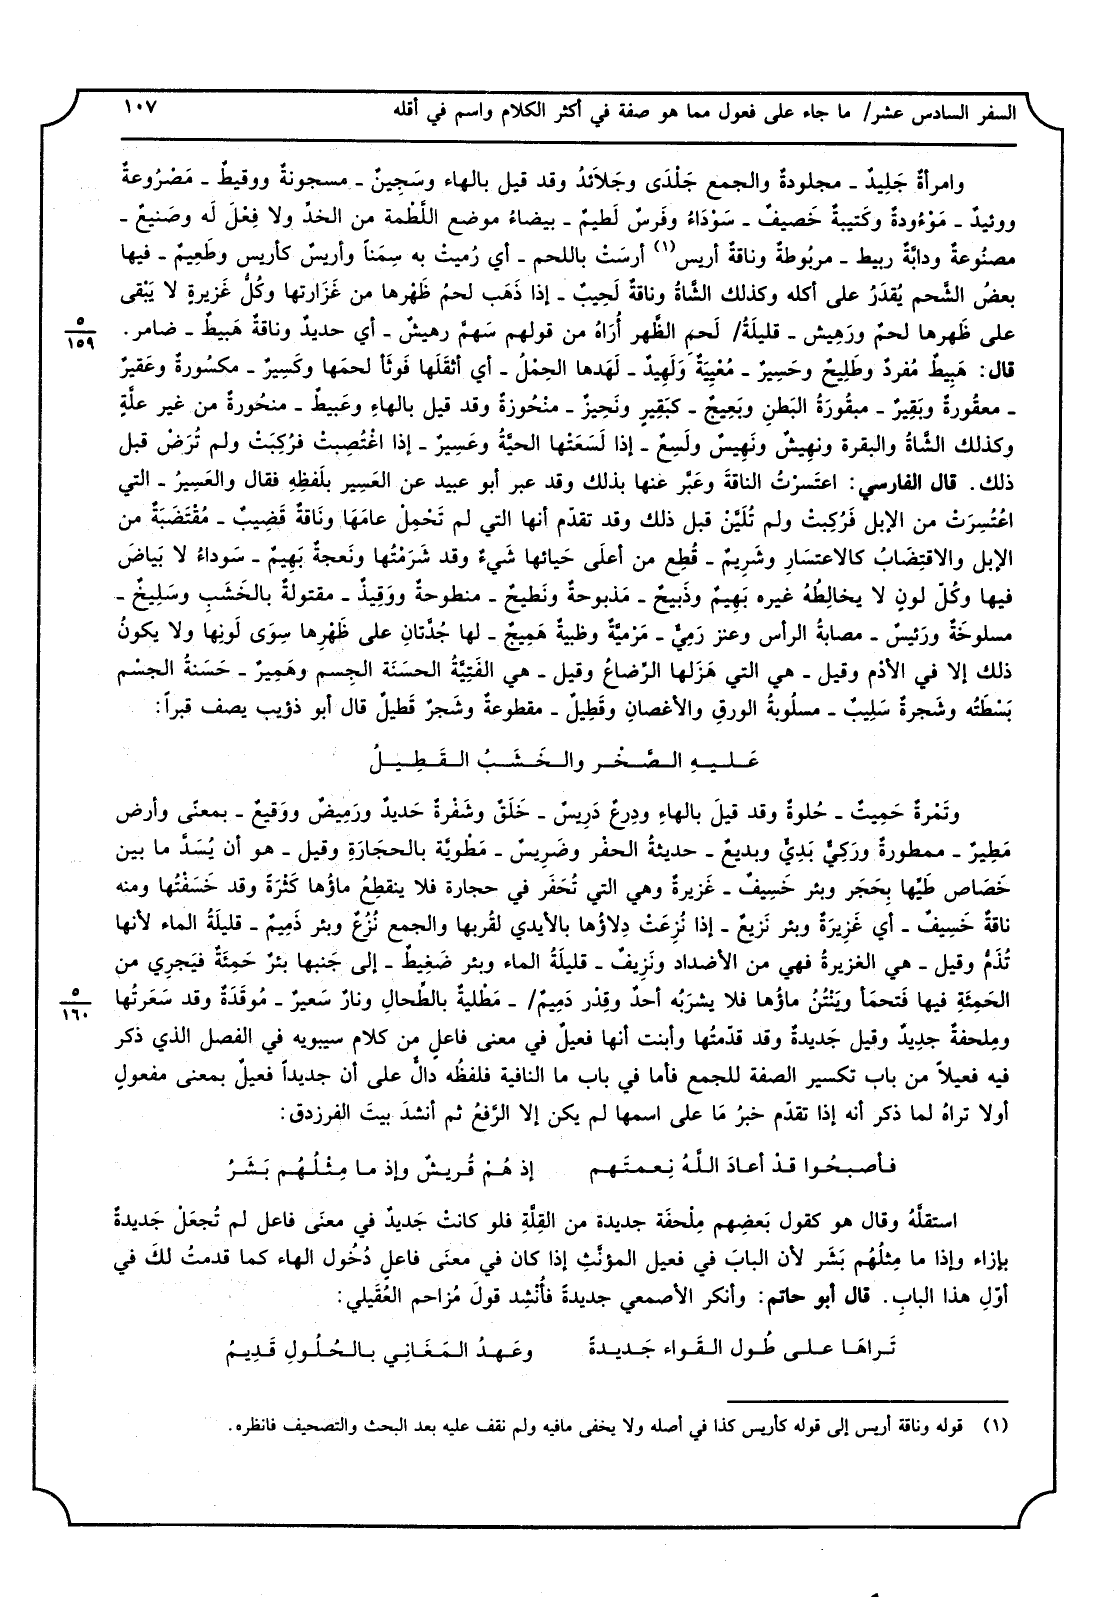 السفر السادس عشر/ ما جاء على فعول مما هو صفة في أكثر الكلام واسم في أقله
١٠٧
وامرأةٌ جَلِيدٌ ـ مجلودةٌ والجمع جَلْدَى وجَلائدُ وقد قيل بالهاء وسَجِينٌ ـ مسجونةٌ ووقيطٌ ـ مَصْرُوعةٌ
ووئيدٌ ـ مَوْءُودةٌ وكَتيبةٌ خَصيفٌ ـ سَوْدَاءُ وفَرسٌ لَطيمٌ ـ بيضاءُ موضع اللَّطمة من الخدِّ ولا فِعْلَ لَه وصَنيعٌ ـ
مصنُوعةٌ ودابَّةٌ ربيط ـ مربُوطةٌ وناقةٌ أريس(١) أرسَتْ باللحم ـ أي رُميتْ به سِمَناً وأريسٌ كأريس وطَعِيمٌ ـ فيها
بعضُ الشَّحم يُقدَرُ على أكله وكذلك الشَّاةُ وناقةٌ لَحِيبٌ ـ إذا ذَهَب لحمُ ظَهْرها من غَزَارتها وكُلُّ غَزيرةٍ لا يَبْقى
على ظَهرها لحمٌ ورَهِيش ـ قليلَةُ/ لَحمِ الظَّهر أُرَاهُ من قولهم سَهمٌ رهيشٌ ـ أي حديدٌ وناقةٌ هَبيطٌ ـ ضامر.
٥
١٥٩
قال: هَبِيطٌ مُفردٌ وطَلِيحٌ وحَسِيرٌ ـ مُعْيِيَةٌ وَلَهِيدٌ ـ لَهَدها الحِمْلُ ـ أي أثقَلَها فَوثَأ لحمَها وكَسِيرٌ ـ مكسُورةٌ وعَقيرٌ
ـ معقُورةٌ وبَقِيرٌ ـ مبقُورَةُ البَطنِ وبَعِيجٌ ـ كبَقِيرٍ ونَحِيزٌ ـ منْحُوزةٌ وقد قيل بالهاءِ وعَبيطٌ ـ منحُورةٌ من غير علَّةٍ
وكذلك الشَّاةُ والبقرة ونهِيشٌ ونَهِيسٌ ولَسِعٌ ـ إذا لَسَعَتْها الحيَّةُ وعَسِيرٌ ـ إذا اغْتُصِبتْ فرُكِبَتْ ولم تُرَضْ قبل
ذلك. قال الفارسي: اعتَسرْتُ الناقَةَ وعَبَّر عنها بذلك وقد عبر أبو عبيد عن العَسِير بلَفظِهِ فقال والعَسِيرُ ـ التي
اعْتُسِرَتْ من الإبل فَرُكِبتْ ولم تُلَيَّنْ قبل ذلك وقد تقدّم أنها التي لم تَحْمِلْ عامَهَا ونَاقةٌ قَضِيبٌ ـ مُقْتَضَبَةٌ من
الإبل والاقتِضَابُ كالاعتسَارِ وشَرِيمٌ ـ قُطِع من أعلَى حَيائها شَيءٌ وقد شَرَمْتُها ونَعجةٌ بَهِيمٌ ـ سَوداءُ لا بَياضَ
فيها وكُلّ لونٍ لا يخالِطُهُ غيره بَهِيمٌ وذَبيحٌ ـ مَذبوحةٌ ونَطيحٌ ـ منطوحةٌ ووَقِيذٌ ـ مقتولةٌ بالخَشَبِ وسَلِيخٌ ـ
مسلوخَةٌ ورَئيسٌ ـ مصابةُ الرأس وعنز رَمِيٌّ ـ مَرْمِيَّةٌ وظبيةٌ هَمِيجٌ ـ لها جُدَّتانِ على ظَهْرِها سِوَى لَونِها ولا يكونُ
ذلك إلا في الأدْم وقيل ـ هي التي هَزَلها الرَّضاعُ وقيل ـ هي الفَتِيَّةُ الحسَنَة الجِسم وهَمِيرٌ ـ حَسَنةُ الجسْم
بَسْطَتُه وشَجرةٌ سَلِيبٌ ـ مسلُوبةُ الورقِ والأغصانِ وقَطِيلٌ ـ مقطوعةٌ وشَجرٌ قَطيلٌ قال أبو ذؤيب يصف قبراً:
عَـلـيـهِ الـصَّـخْـر والـخَـشَـبُ الـقَـطِـيـلُ
وتَمْرةٌ حَمِيتٌ ـ حُلوةٌ وقد قيلَ بالهاءِ ودِرعٌ دَرِيسٌ ـ خَلَقٌ وشَفْرةٌ حَديدٌ ورَمِيضٌ ووَقيعٌ ـ بمعنًى وأرض
مَطِيرٌ ـ ممطورةٌ ورَكِيٌّ بَدِيٌّ وبديعٌ ـ حديثةُ الحفْر وضَرِيسٌ ـ مَطْوِيّة بالحجَارَةِ وقيل ـ هو أن يُسَدَّ ما بين
خَصَاص طَيِّها بِحَجَر وبئر خَسِيفٌ ـ غَزيرةٌ وهي التي تُحْفَر في حجارة فلا ينقطِعُ ماؤُها كَثْرَةً وقد خَسَفْتُها ومنه
ناقةٌ خَسِيفٌ ـ أي غَزِيرَةٌ وبئر نَزيعٌ ـ إذا نُزِعَتْ دِلاؤُها بالأيدي لقُربها والجمع نُزُعٌ وبئر ذَمِيمٌ ـ قليلَةُ الماء لأنها
تُذَمُّ وقيل ـ هي الغزيرةُ فهي من الأضداد ونَزِيفٌ ـ قليلَةُ الماء وبئر ضَغِيطٌ ـ إلى جَنبها بئرٌ حَمِئَةٌ فيَجرِي من
الحَمِئَةِ فيها فَتحمَأ ويَنْتُنُ ماؤُها فلا يشرَبُه أحدٌ وقِدْر دَمِيمٌ/ ـ مَطْليةٌ بالطِّحال ونارٌ سَعيرٌ ـ مُوقَدَةٌ وقد سَعَرتُها
٥
١٦٠
ومِلحفةٌ جدِيدٌ وقيل جَديدةٌ وقد قدّمتُها وأبنت أنها فعيلٌ في معنى فاعلٍ من كلام سيبويه في الفصل الذي ذكر
فيه فعيلاً من باب تكسير الصفة للجمع فأما في باب ما النافية فلفظُه دالٌّ على أن جديداً فعيلٌ بمعنى مفعولٍ
أولا تراهُ لما ذكر أنه إذا تقدّم خبرُ مَا على اسمها لم يكن إلا الرَّفعُ ثم أنشدَ بيتَ الفرزدق:
فـأصـبـحُـوا قـدْ أعـادَ الـلَّـهُ نِـعـمـتَـهـم
إذ هُـمْ قُـريـشٌ وإذ مـا مِـثْـلُـهُـم بَـشَـرُ
استقلَّهُ وقال هو كقول بَعضِهم مِلْحفَة جديدة من القِلَّةِ فلو كانتْ جَديدٌ في معنَى فاعل لم تُجعَلْ جَديدةٌ
بإزاء وإذا ما مِثلُهُم بَشَر لأن البابَ في فعيل المؤنَّثِ إذا كان في معنَى فاعلٍ دُخُول الهاء كما قدمتُ لكَ في
أوّلِ هذا البابِ. قال أبو حاتم: وأنكر الأصمعي جديدةً فأُنْشِد قولَ مُزاحم العُقَيلي:
تَـراهَـا عـلـى طُـول الـقَـواء جَـديـدةً
وعَـهـدُ الـمَـغَـانِـي بـالـحُـلُـولِ قَـدِيـمُ
(١) قوله وناقة أريس إلى قوله كأريس كذا في أصله ولا يخفى مافيه ولم نقف عليه بعد البحث والتصحيف فانظره.